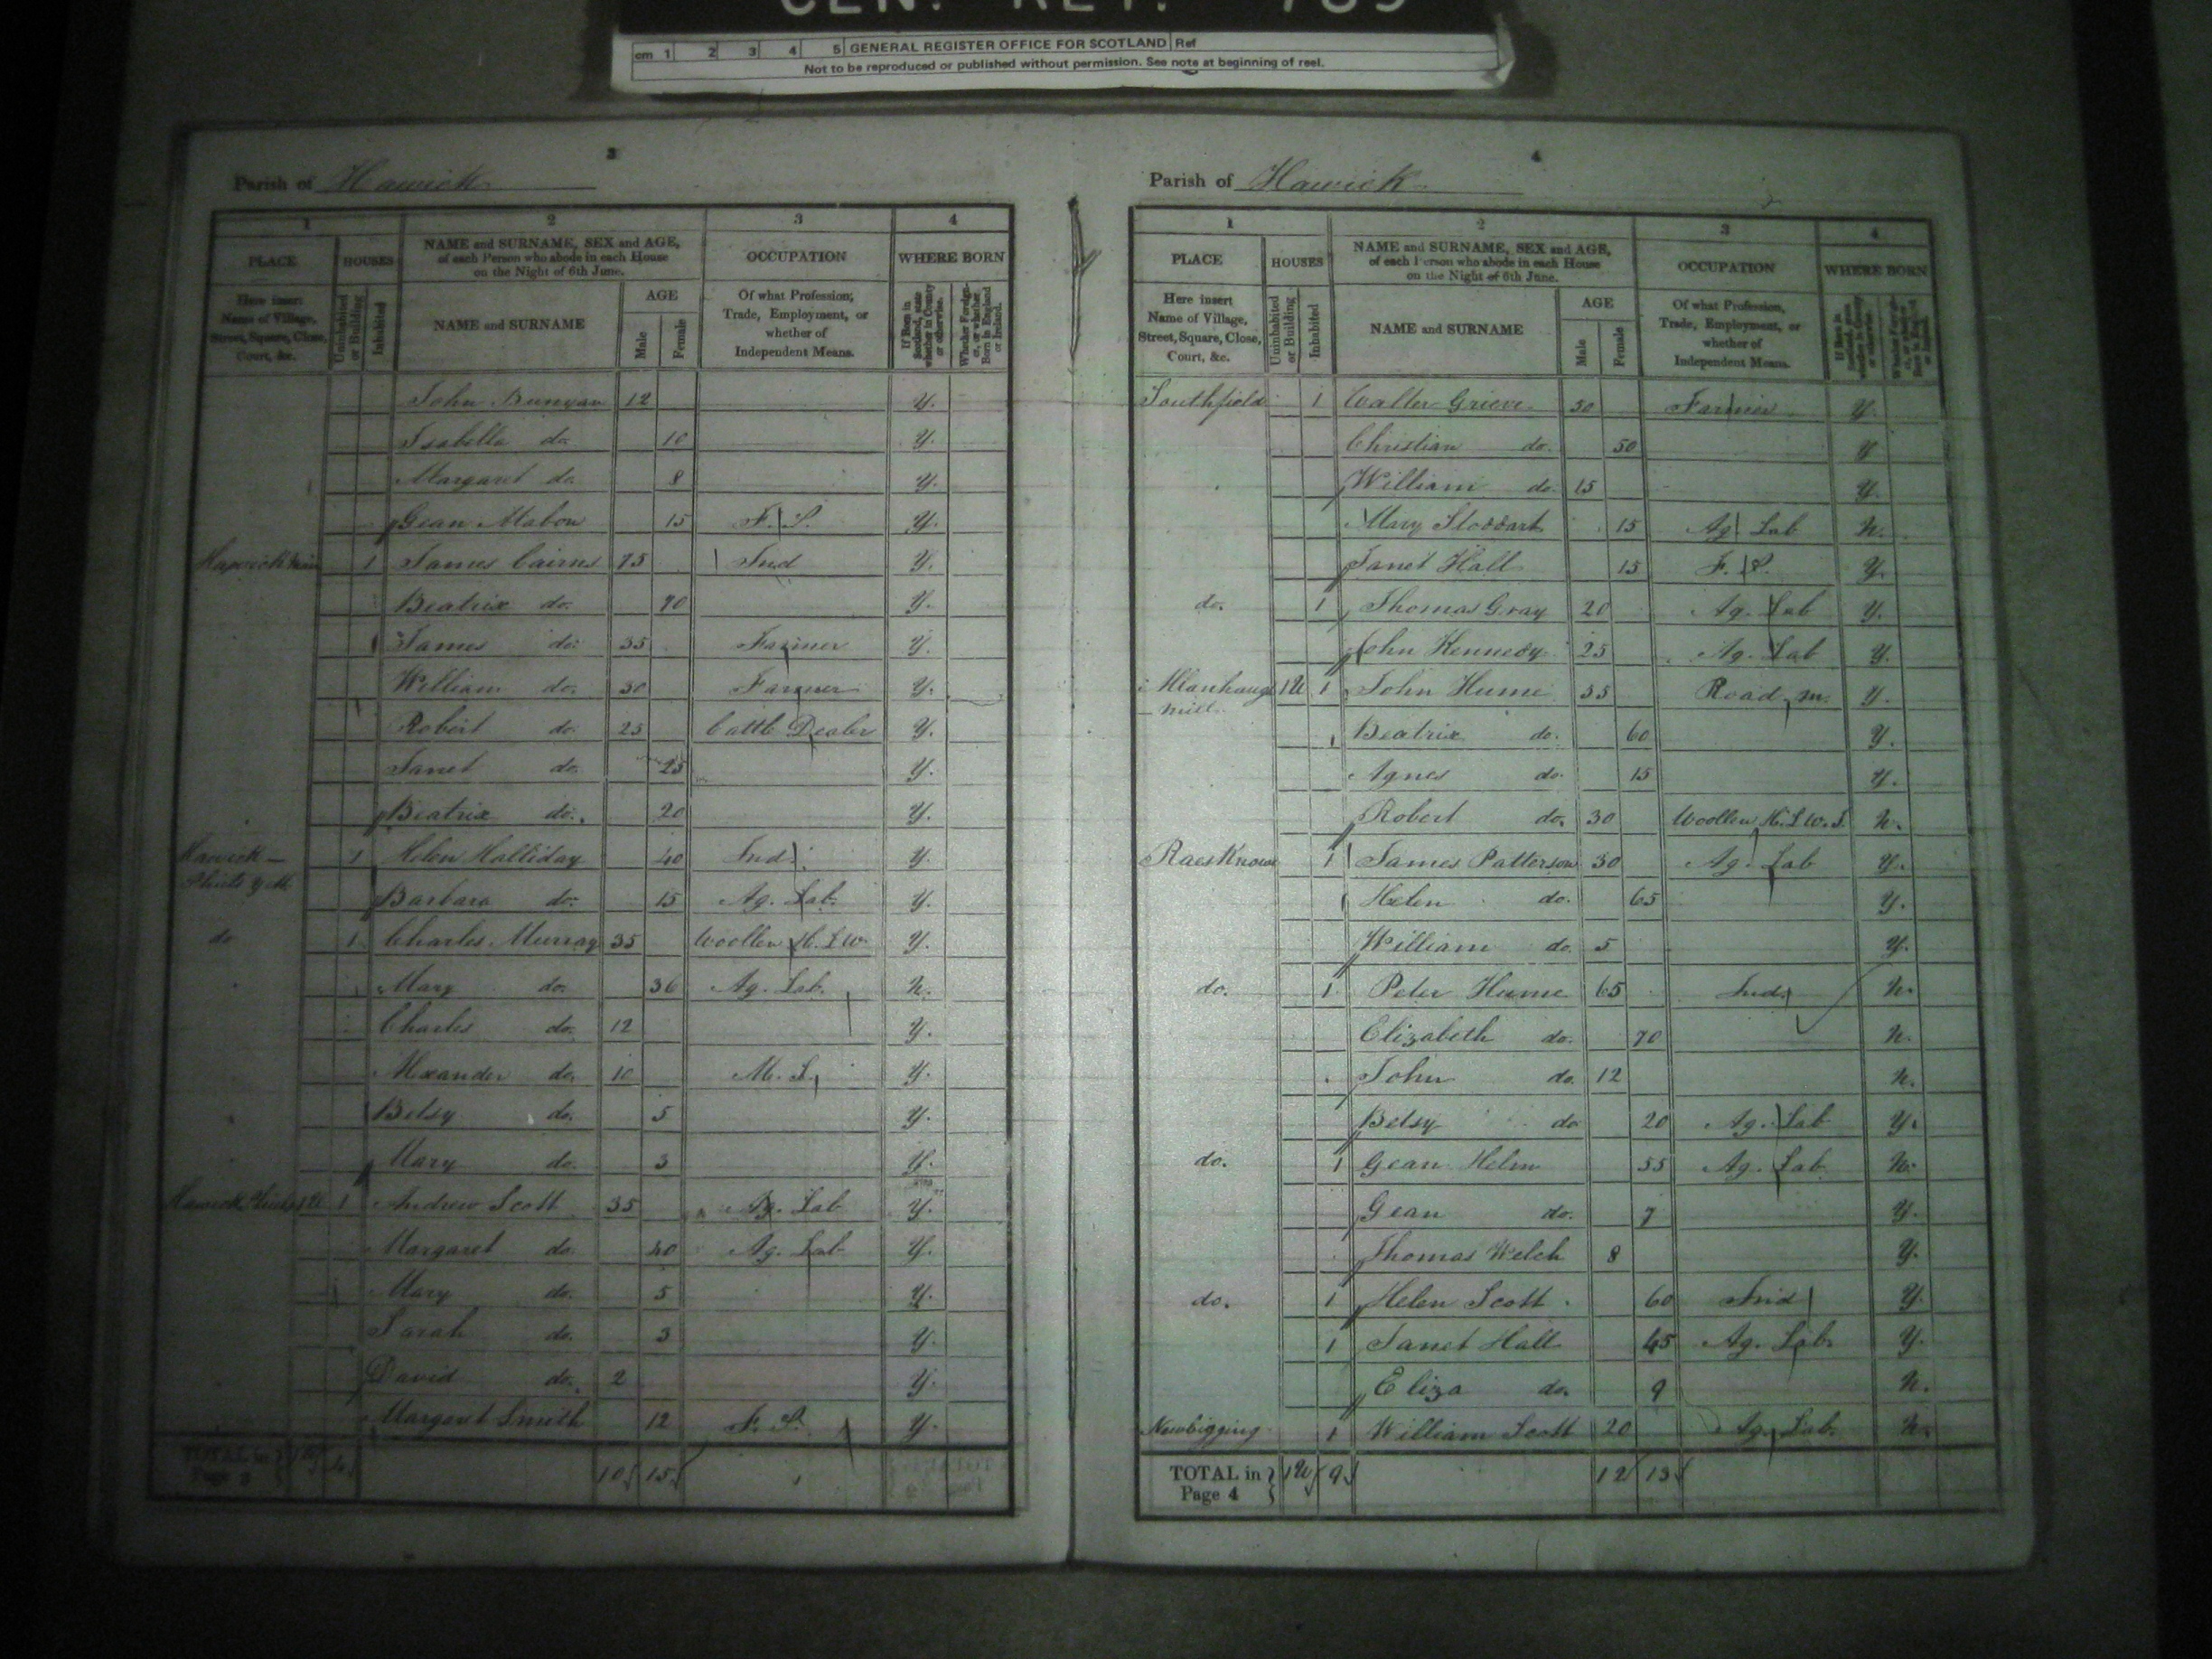 CEN. RET. 789
cm 1 2 3 4 5 GENERAL REGISTER OFFICE FOR SCOTLAND Ref
Not to be reproduced or published without permission. See note at beginning of reel.
3
Parish of Hawick
1 2 3 4
PLACE HOUSES NAME and SURNAME, SEX and AGE, of each Person who abode in each House on the Night of 6th June. OCCUPATION WHERE BORN
Here insert Name of Village, Street, Square, Close, Court, &c. Uninhabited or Building Inhabited NAME and SURNAME AGE Male Female Of what Profession, Trade, Employment, or whether of Independent Means. If Born in Scotland, state whether in County or otherwise. Whether Foreigner, or whether Born in England or Ireland.
John 12 y.
Isabella do. 10 y.
Margaret do. 8 y.
Gean Mabon 15 F. S. y.
1 James Cairns 75 Ind y.
Beatrix do. 70 y.
James do. 35 Farmer y.
William do. 30 Farmer y.
Robert do. 25 Cattle Dealer y.
Janet do. 25 y.
Beatrix do. 20 y.
Hawick 1 Helen Halliday 40 Ind. y.
Barbara do. 15 Ag. Lab. y.
do 1 Charles Murray 35 Woollen H. L. W. y.
Mary do. 36 Ag. Lab. n.
Charles do. 12 y.
Alexander do. 10 M. S. y.
Betsy do. 5 y.
Mary do. 3 y.
Hawick 1 Andrew Scott 35 Ag. Lab y.
Margaret do. 40 Ag. Lab y.
Mary do. 5 y.
Sarah do. 3 y.
David do. 2 y.
Margaret Smith 12 F. S. y.
TOTAL in Page 3 10 15
4
Parish of Hawick
1 2 3 4
PLACE HOUSES NAME and SURNAME, SEX and AGE, of each Person who abode in each House on the Night of 6th June. OCCUPATION WHERE BORN
Here insert Name of Village, Street, Square, Close, Court, &c. Uninhabited or Building Inhabited NAME and SURNAME AGE Male Female Of what Profession, Trade, Employment, or whether of Independent Means. If Born in Scotland, state whether in County or otherwise. Whether Foreigner, or whether Born in England or Ireland.
Southfield 1 Walter Grieve 50 Farmer y.
Christian do. 50 y
William do. 15 y.
Mary Stoddart 15 Ag. Lab n.
Janet Hall 15 F. S. y.
do. 1 Thomas Gray 20 Ag. Lab y.
John Kennedy 25 Ag. Lab y.
Allanhaugh mill 1U 1 John Hume 55 Road m. y.
Beatrix do. 60 y.
Agnes do. 15 y.
Robert do. 30 Woollen H. L. W. J. n.
Raesknowe 1 James Patterson 30 Ag. Lab y.
Helen do. 65 y.
William do. 5 y.
do. 1 Peter Hume 65 Ind. n.
Elizabeth do. 70 n.
John do. 12 n.
Betsy do 20 Ag. Lab y.
do. 1 Gean Helm 55 Ag. Lab n.
Gean do. 7 y.
Thomas Welch 8 y.
do. 1 Helen Scott 60 Ind y.
1 Janet Hall 45 Ag. Lab. y.
Eliza do. 9 n.
Newbigging 1 William Scott 20 Ag. Lab. n.
TOTAL in Page 4 1U 9 12 13